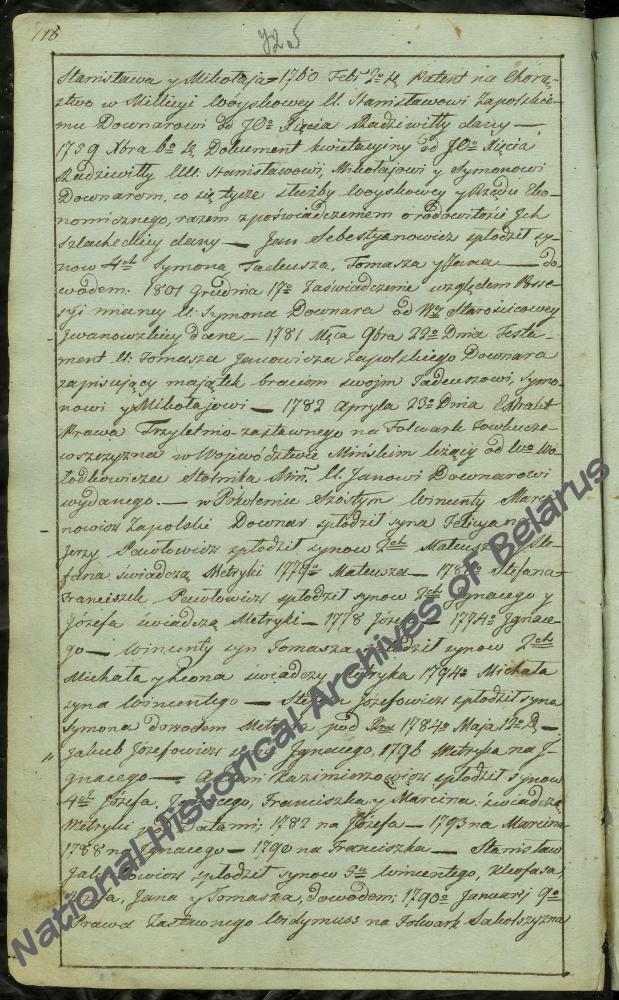 118
925
Stanisława y Mikołaja — 1760 Febr 2o Dą Patent na Chorą-
ztwo w Millicyi Woyskowey U. Stanisławowi Zapolskie-
mu Downarowi od JO. Xięcia Radziwiłły dany —
1739 Xbra 6o Dą Dokument kwietacyiny od JO Xięcia
Radziwiłły UU. Stanisławowi, Mikołajowi y Symonowi
Downarom, co się tycze służby Woyskowey y Rządu Eko-
nomicznego, razem z poświadczeniem o rodowitości Ich
Szlacheckiey dany — Jan Sebestyanowicz spłodził sy-
now 4ch Symona, Tadeusza, Tomasza y Jana — do-
wodem: 1801 Grudnia 17o Zaświadczenie względem Posse-
syi mianey U. Szymona Downara od Starościcowey
Iwanowskiey dane — 1781 Mca 9bra 22o Dnia Testa-
ment U. Tomasza Janowicza Zapolskiego Downara
zapisujący majątek braciom swoim Tadeuszowi, Symo-
nowi y Mikołajowi — 1782 Apryla 23o Dnia Extrakt
Prawa Trzyletnio-zastawnego na Folwark
w Wojewodztwie Minskim leżący od Wo-
łodkowicza Stolnika Min. U. Janowi Downarowi
wydanego. — w Pokoleniu Szóstym Wincenty Marcy-
nowicz Zapolski Downar spłodził syna Felicyana
Jerzy Pawłowicz spłodził synow 2ch Mateusza y Ste-
fana, świadczą Metryki 1779o Mateusza — Stefana
Franciszek Pawłowicz spłodził synow 2ch Ignacego y
Józefa świadczą Metryki — 1778 Józefa — 1774o Ignace-
go — Wincenty syn Tomasza spłodził synow 2ch
Michała y Leona świadczy Metryka 1794o Michała
syna Wincentego — Stefan Józefowicz spłodził syna
Symona dowodem Metryka pod Rok 1784o Maja 12o D —
Jakub Józefowicz syna Ignacego, 1796 Metryka na I-
gnacego — Kazimierzowicz spłodził synow
4ch Józefa, Ignacego, Franciszka y Marcina świadczą
Metryki pod Datami; 1782 na Józefa — 1793 na Marcina
1788 na Ignacego — 1790 na Franciszka — Stanisław
Jakubowicz spłodził synow 5ciu Wincentego, Kleofasa,
Józefa, Jana y Tomasza, dowodem; 1790o Januarij 9o
Prawa Zastawnego Widymuss na Folwark
National Historical Archives of Belarus